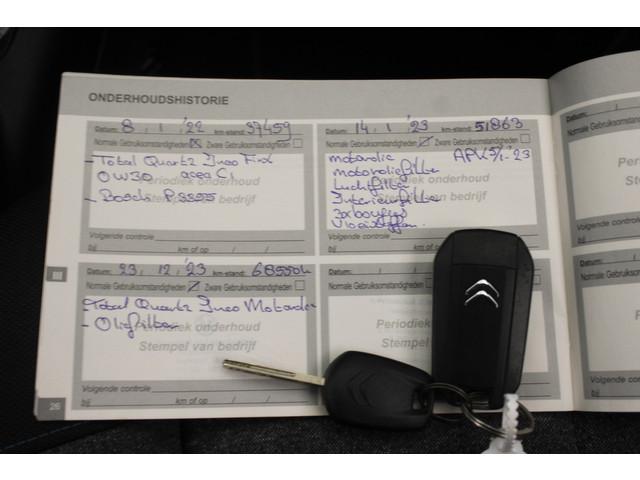 ONDERHOUDSHISTORIE
Datum: 8 / 1 / '22 km-stand: 37459
Normale Gebruiksomstandigheden Zware Gebruiksomstandigheden
- Total Quartz Ineo First
0W30 acea C1
- Bosch P3355
Periodiek onderhoud
Stempel van bedrijf
Volgende controle
bij km of op / /
Datum: 14 / 1 / '23 km-stand: 51863
Normale Gebruiksomstandigheden Zware Gebruiksomstandigheden
motorolie APK 5/1-'23
motoroliefilter
Luchtfilter
Interieurfilter
Periodiek onderhoud
Stempel van bedrijf
Volgende controle
bij km of op / /
Datum: 23 / 12 / '23 km-stand:
Normale Gebruiksomstandigheden Zware Gebruiksomstandigheden
- Total Quartz Ineo Motorolie
- Oliefilter
Periodiek onderhoud
Stempel van bedrijf
Volgende controle
bij km of op / /
Datum: / /
Normale Gebruiksomstandigheden
26